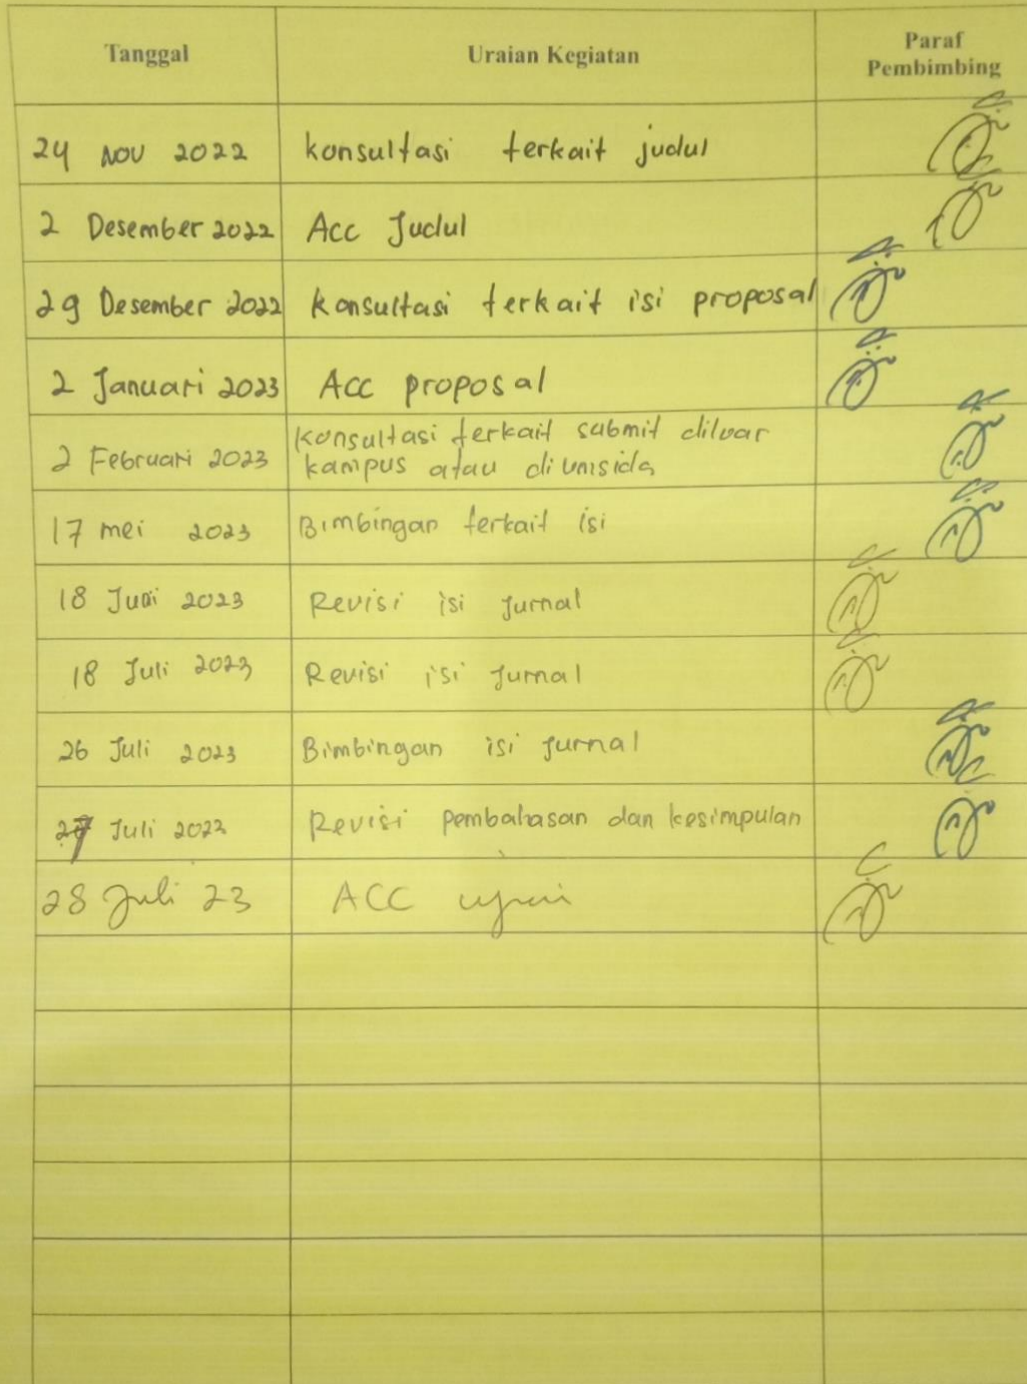 Tanggal Uraian Kegiatan Paraf
Pembimbing
24 Nov 2022 konsultasi terkait judul
2 Desember 2022 Acc Judul
29 Desember 2022 konsultasi terkait isi proposal
2 Januari 2023 Acc proposal
2 Februari 2023 Konsultasi terkait submit diluar
kampus atau di umsida
17 mei 2023 Bimbingan terkait isi
18 Juni 2023 Revisi isi Jurnal
18 Juli 2023 Revisi isi Jurnal
26 Juli 2023 Bimbingan isi Jurnal
27 Juli 2023 Revisi pembahasan dan kesimpulan
28 Juli 23 ACC ujian